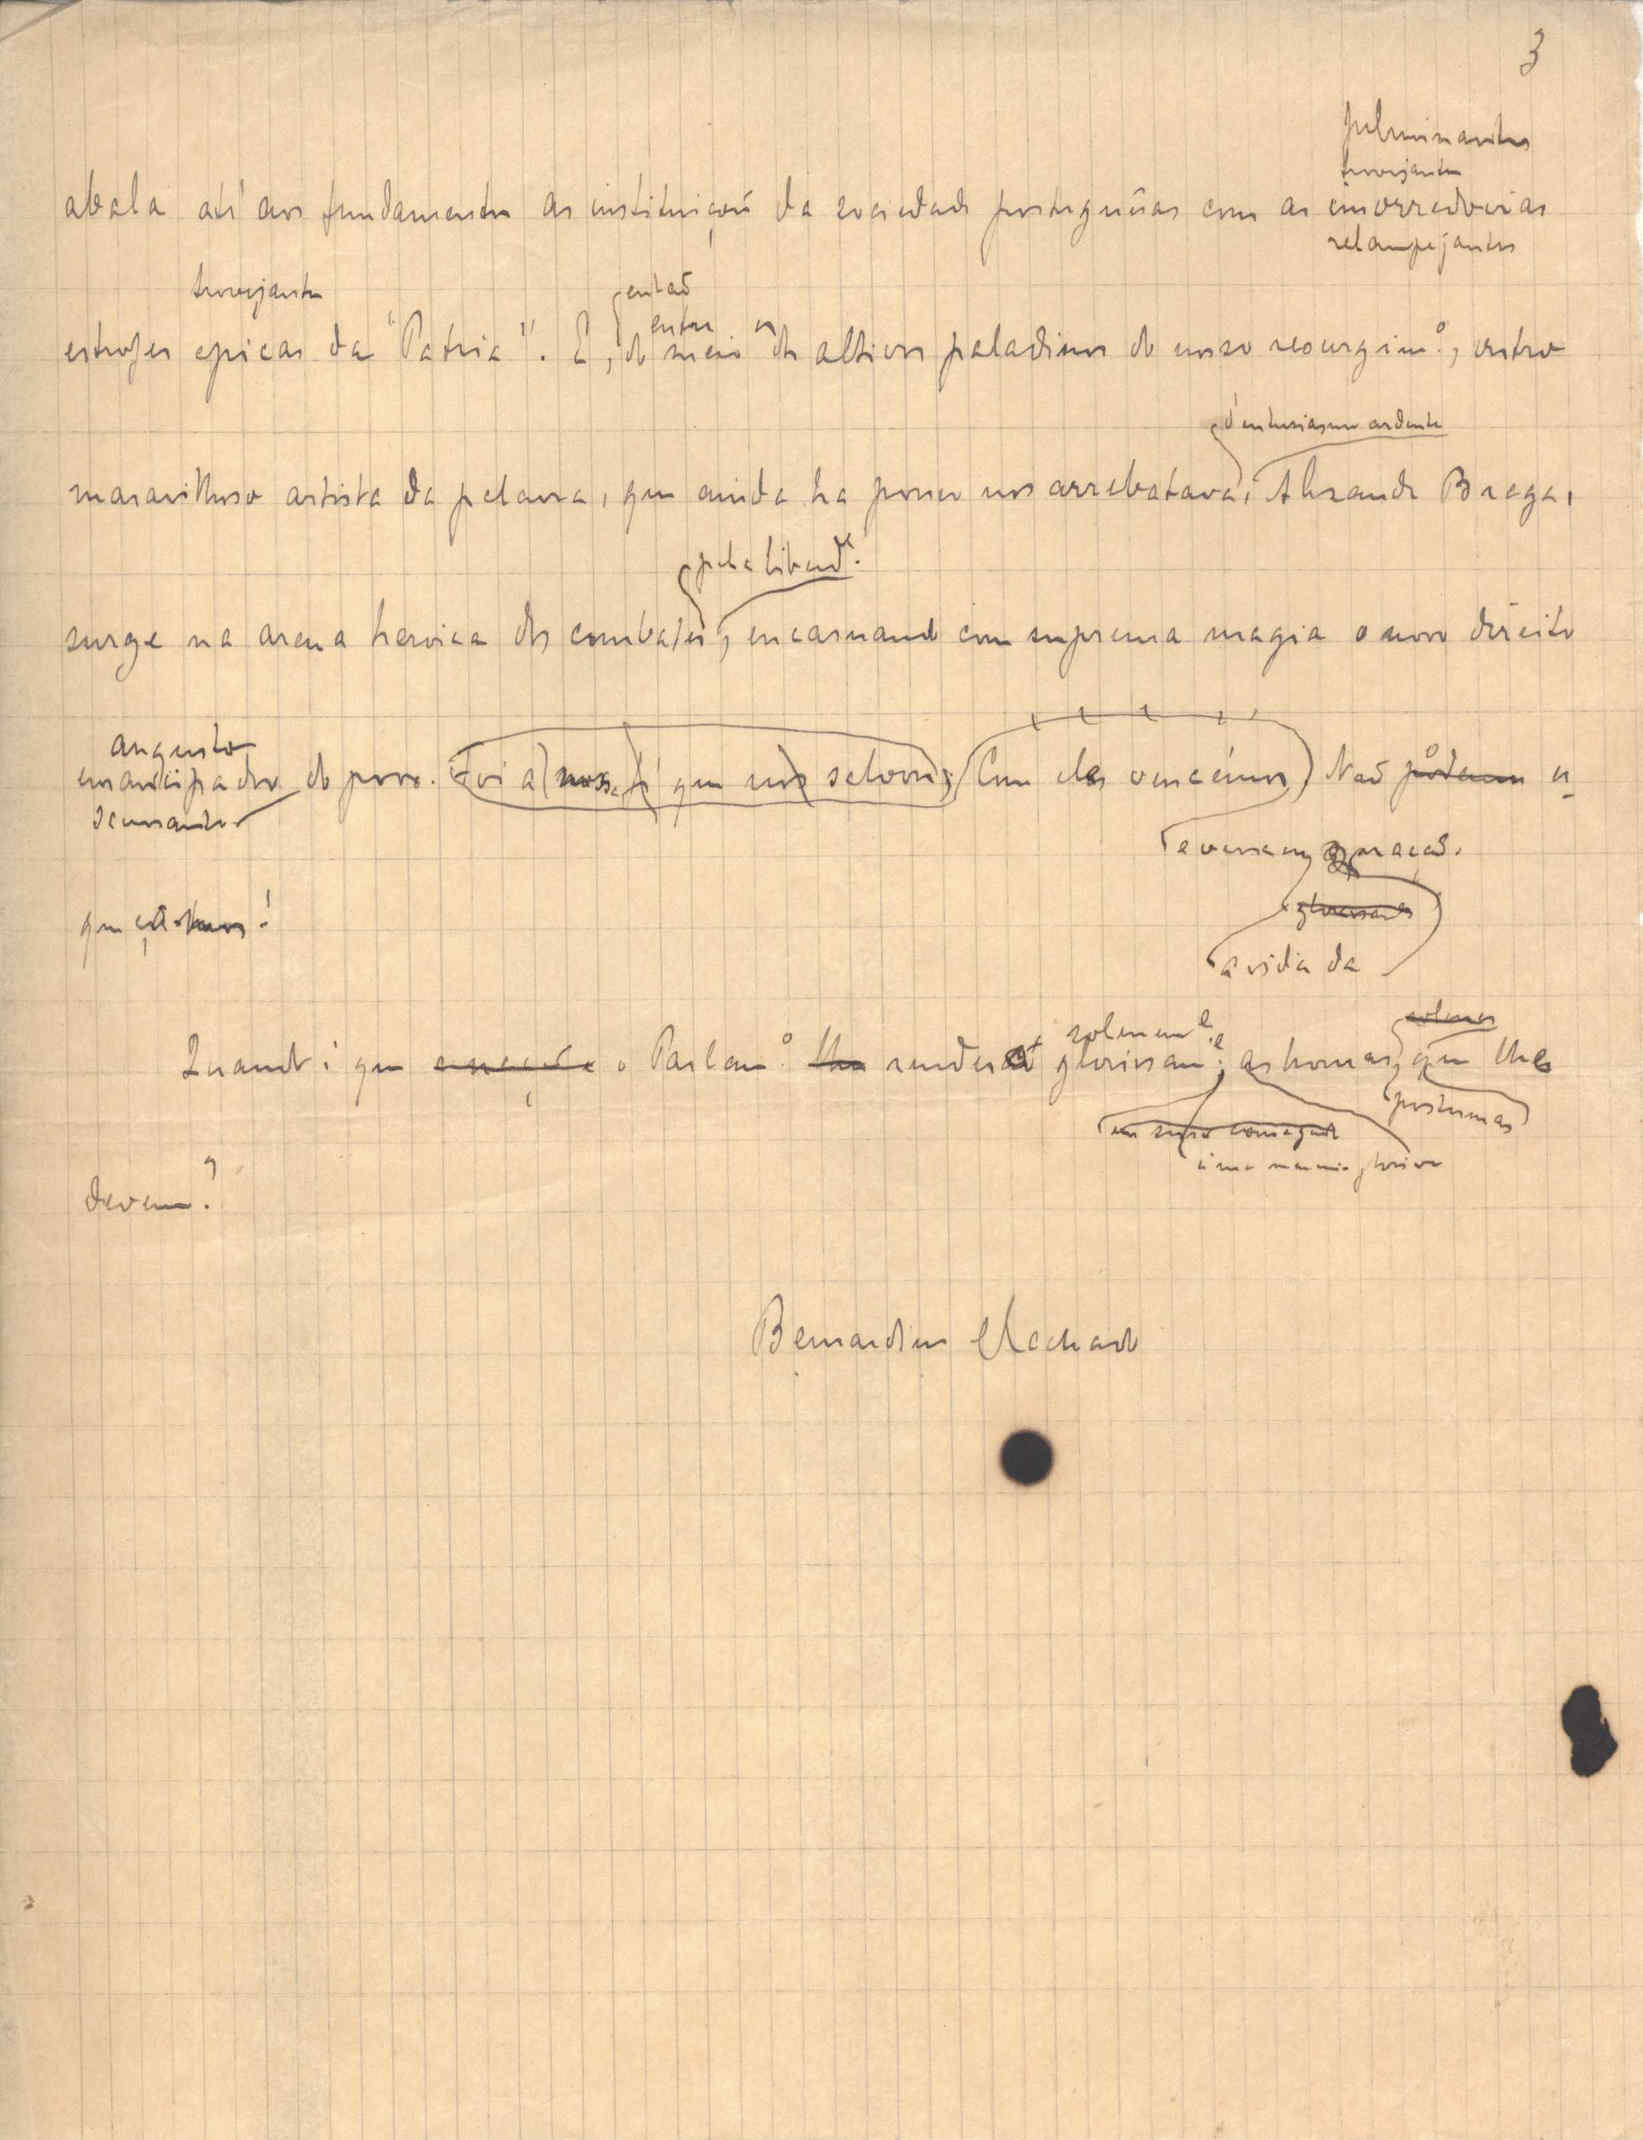 3
fulminantes
trovejantes
abala até aos fundamentos as instituições da sociedade portuguêsas com as imorredoiras
relampejantes
trovejantes
então
entre os
estrofes epicas da "Patria". E, do meio de altivos paladinos do nosso resurgim.º, outro
d'entusiasmo ardente
maravilhoso artista da palavra, que ainda ha pouco nos arrebatava, Alexandre Braga,
pela liberd.e
surge na arena heroica dos combates, encarnando com suprema magia o novo direito
augusto
emancipador do povo. Foi a nossa fé que nos salvou; Com eles vencêmos. Não podemos es
a nação.
que çâmos!
gloriosa
a vida da
solenem.e
solenes
Quando é que a nação o Parlam.º lhe renderá gloriosam.e as honras, que lhes
postumas
devem?
Bernardino Machado